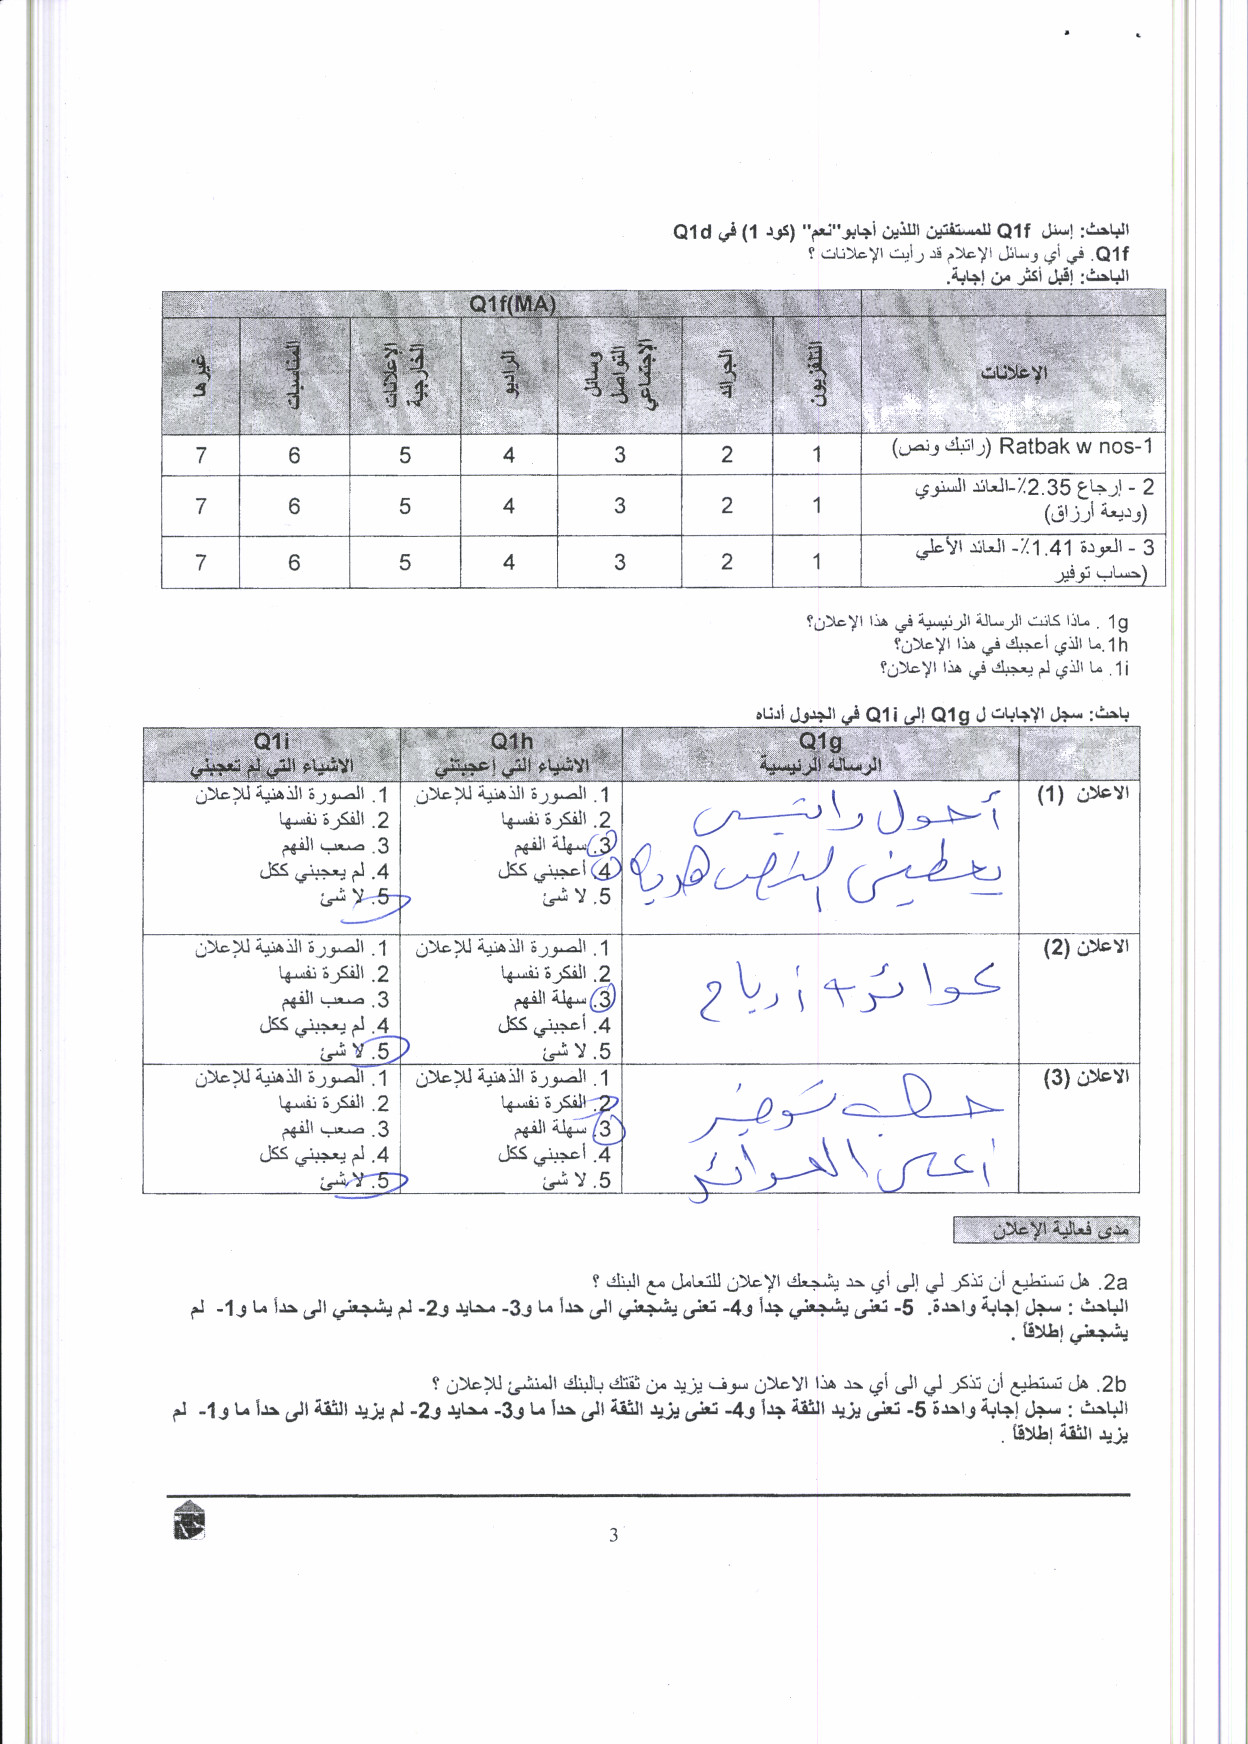 الباحث: إسئل Q1f للمستفتين اللذين أجابو"نعم" (كود 1) في Q1d
Q1f. في أي وسائل الإعلام قد رأيت الإعلانات ؟
الباحث: إقبل أكثر من إجابة.
Q1f(MA)
الإعلانات التلفزيون الجرائد وسائل التواصل الإجتماعي الراديو الإعلانات الخارجية المناسبات غيرها
1-Ratbak w nos (راتبك ونص) 1 2 3 4 5 6 7
2 - إرجاع 2.35٪-العائد السنوي
(وديعة أرزاق) 1 2 3 4 5 6 7
3 - العودة 1.41٪- العائد الأعلي
(حساب توفير 1 2 3 4 5 6 7
1g . ماذا كانت الرسالة الرئيسية في هذا الإعلان؟
1h.ما الذي أعجبك في هذا الإعلان؟
1i. ما الذي لم يعجبك في هذا الإعلان؟
باحث: سجل الإجابات ل Q1g إلى Q1i في الجدول أدناه
Q1g Q1h Q1i
الرساله الرئيسية الاشياء التي إعجبتني الاشياء التي لم تعجبني
الاعلان (1)
أحول راتبي
يعطيني النص هدية
1. الصورة الذهنية للإعلان
2. الفكرة نفسها
3. سهلة الفهم
4. أعجبني ككل
5. لا شئ
1. الصورة الذهنية للإعلان
2. الفكرة نفسها
3. صعب الفهم
4. لم يعجبني ككل
5. لا شئ
الاعلان (2)
كوائد + أرباح
1. الصورة الذهنية للإعلان
2. الفكرة نفسها
3. سهلة الفهم
4. أعجبني ككل
5. لا شئ
1. الصورة الذهنية للإعلان
2. الفكرة نفسها
3. صعب الفهم
4. لم يعجبني ككل
5. لا شئ
الاعلان (3)
حساب توفير
أعلى العوائد
1. الصورة الذهنية للإعلان
2. الفكرة نفسها
3. سهلة الفهم
4. أعجبني ككل
5. لا شئ
1. الصورة الذهنية للإعلان
2. الفكرة نفسها
3. صعب الفهم
4. لم يعجبني ككل
5. لا شئ
مدى فعالية الإعلان
2a. هل تستطيع أن تذكر لي إلى أي حد يشجعك الإعلان للتعامل مع البنك ؟
الباحث : سجل إجابة واحدة. 5- تعنى يشجعني جداً و4- تعنى يشجعني الى حداً ما و3- محايد و2- لم يشجعني الى حداً ما و1- لم
يشجعني إطلاقاً .
2b. هل تستطيع أن تذكر لي الى أي حد هذا الاعلان سوف يزيد من ثقتك بالبنك المنشئ للإعلان ؟
الباحث : سجل إجابة واحدة 5- تعنى يزيد الثقة جداً و4- تعنى يزيد الثقة الى حداً ما و3- محايد و2- لم يزيد الثقة الى حداً ما و1- لم
يزيد الثقة إطلاقاً .
3